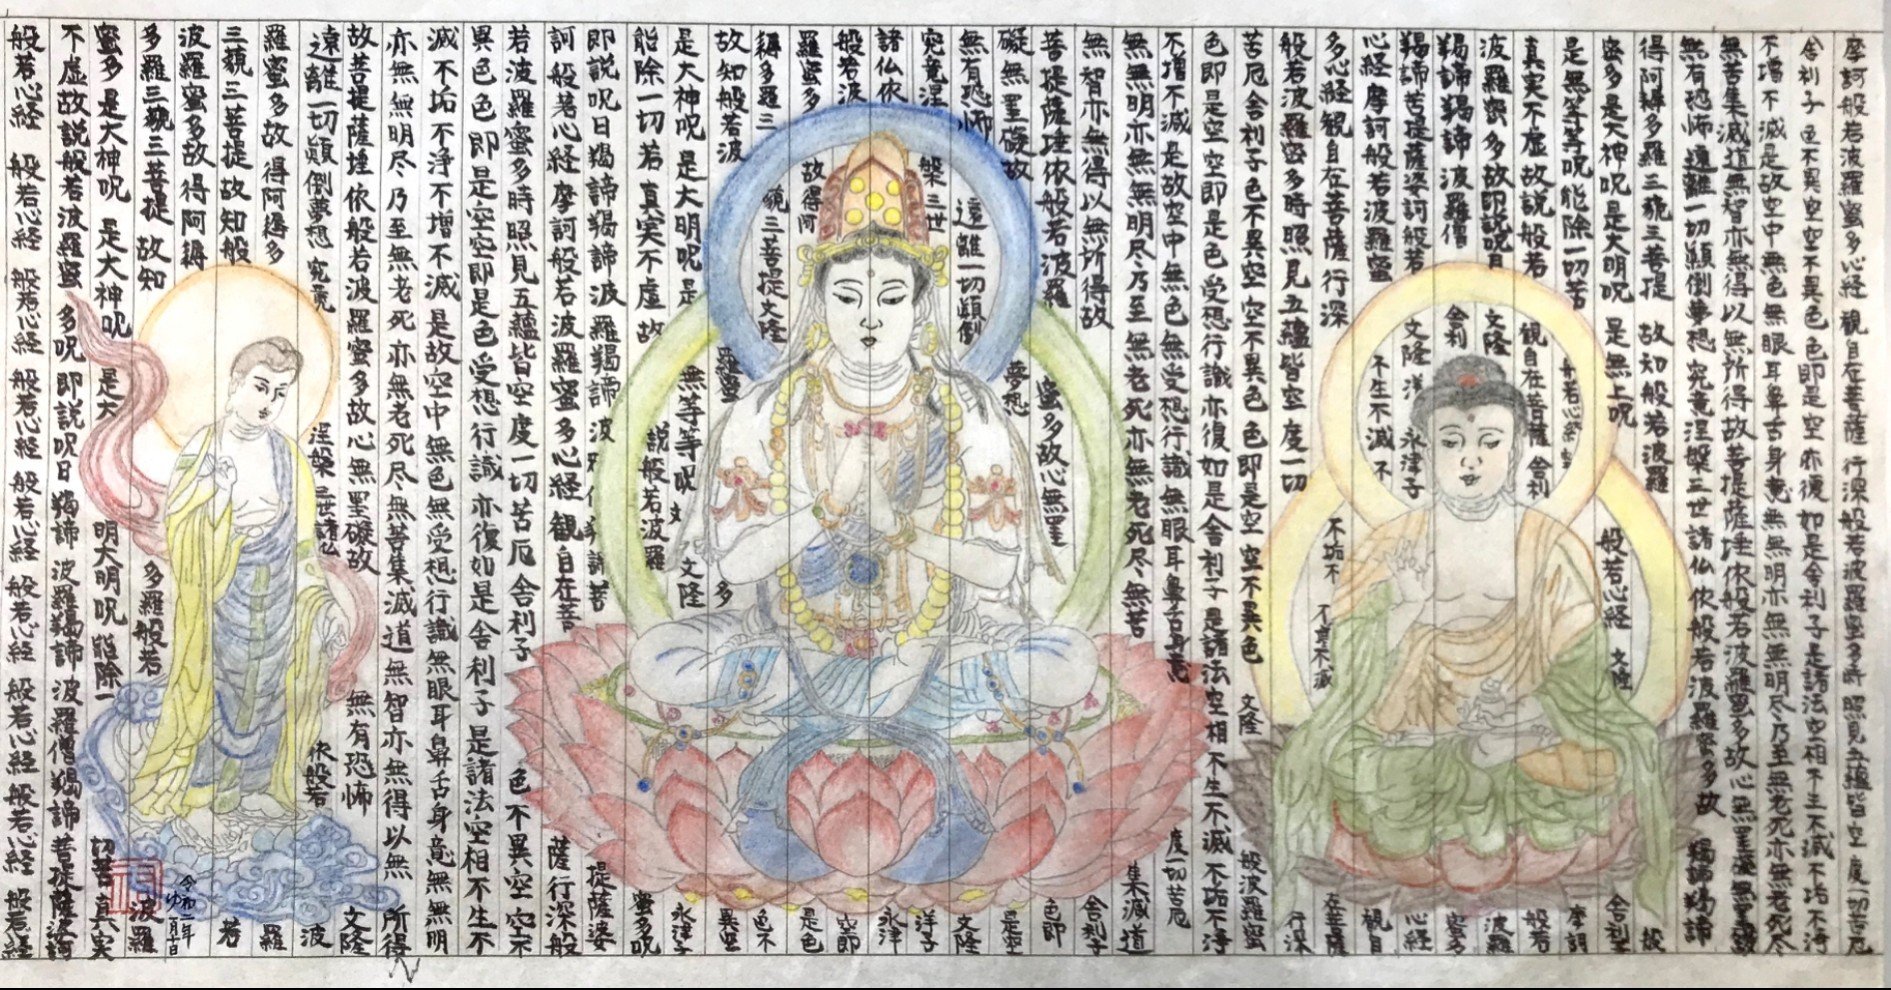 摩訶般若波羅蜜多心経 観自在菩薩 行深般若波羅蜜多時 照見五蘊皆空 度一切苦厄
舎利子色不異空空不異色色即是空亦復如是舎利子是諸法空相不生不滅不垢不浄
不増不滅是故空中無色無眼耳鼻舌身意無無明亦無無明尽乃至無老死亦無老死尽
無苦集滅道無智亦無得以無所得故菩提薩埵依般若波羅蜜多故心無罣礙無罣礙
無有恐怖遠離一切顛倒夢想究竟涅槃三世諸仏依般若波羅蜜多故 羯諦羯諦
得阿耨多羅三藐三菩提 故知般若波羅 般
蜜多是大神呪是大明呪 是無上呪 般若心経 文隆 舎利子
是無等等呪能除一切苦 般若心経 摩訶
真実不虚故説般若 観自在菩薩 舎利 般若
波羅蜜多故即説呪曰 文隆 波羅
羯諦羯諦 波羅僧 舎利 蜜多
羯諦菩提薩婆訶般若 文隆 洋 永津子 心経
心経摩訶般若波羅蜜 不生不滅 不 観自
多心経観自在菩薩行深 不垢不 不滅 在菩薩
般若波羅蜜多時照見五蘊皆空度一切 行深
苦厄舎利子色不異空空不異色色即是空空不異色 文隆 般波羅蜜
色即是空空即是色受想行識亦復如是舎利子是諸法空相不生不滅不垢不浄
不増不滅是故空中無色無受想行識無眼耳鼻舌身意 度一切苦厄
無無明亦無無明尽乃至無老死亦無老死尽無苦 集滅道
無智亦無得以無所得故 舎利子
菩提薩埵依般若波羅 蜜多故心無罣 色即
礙無罣礙故 夢想 是空
無有恐怖 遠離一切顛倒 文隆
究竟涅 槃三世 洋子
諸仏依 永津
般若波 空即
羅蜜多 故得阿 是色
耨多羅三 藐三菩提文隆 色不
故知般若波 羅蜜 多 異空
是大神呪是大明呪是 無等等呪 文隆 永津子
能除一切若真実不虚故 説般若波羅 蜜多呪
即説呪曰羯諦羯諦波羅羯諦 波 羯諦菩 提薩婆
訶般若心経摩訶般若波羅蜜多心経観自在菩 薩行深般
若波羅蜜多時照見五蘊皆空度一切苦厄舎利子 色不異空空不
異色色即是空空即是色受想行識亦復如是舎利子是諸法空相不生不
滅不垢不浄不増不滅是故空中無色無受想行識無眼耳鼻舌身意無無明
亦無無明尽乃至無老死亦無老死尽無苦集滅道無智亦無得以無 所得
故菩提薩埵依般若波羅蜜多故心無罣礙故 無有恐怖 文隆
遠離一切顛倒夢想究竟 涅槃三世諸仏 依般若 波
羅蜜多故得阿耨多 羅
三藐三菩提故知般 若
波羅蜜多故得阿耨 令和二年 六月十日
多羅三藐三菩提故知 多羅般若 波羅
蜜多是大神呪是大神呪 是大 明大明呪能除一 切苦真実
不虚故説般若波羅蜜 多呪即説呪曰羯諦波羅羯諦波羅僧羯諦菩提薩婆訶
般若心経 般若心経 般若心経 般若心経 般若心経 般若心経 般若心経 般若心経 般若心経